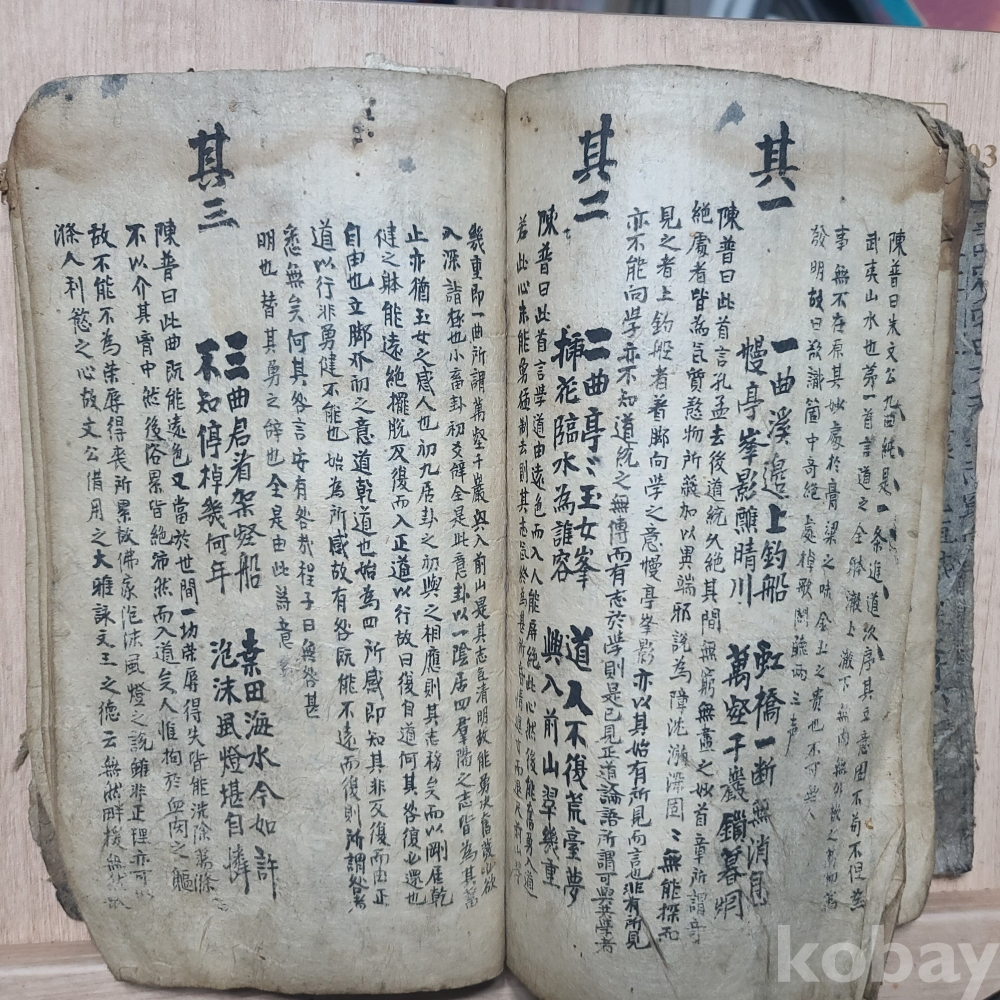 陳普曰朱文公九曲純是一条進道次序其立意固不苟不但為
武夷山水也苐一首言道之全躰澈上澈下無內無外
事無不在原其妙處於膏梁之味金玉之貴也不可
發明故曰欲識箇中奇絶處棹歌閒聽兩三声
其一
一曲溪邉上釣船 虹橋一断無消息
幔亭峯影蘸晴川 萬壑千巖鎖暮烟
陳普曰此首言孔孟去後道統久絶其間無窮無盡之妙首章所謂奇
絶處者皆為氣質慾物所蔽加以異端邪說為障沈溺深固〻無能探而
見之者上釣船者着脚向學之意幔亭峯影亦以其始有所見而言也非有所見
亦不能向學亦不知道統之無傳而有志於學則是已見正道論語所謂可與共學者
其二
二曲亭〻玉女峯 道人不復荒臺夢
揷花臨水為誰容 興入前山翠幾重
陳普曰此首言學道由遠色而入人能屏絶此心然後能奮勇入道
若此心未能勇猛制去則其志氣終為
幾重即一曲所謂萬壑千巖興入前山是其志氣清明故能勇决奮
入深詣極也小畜卦初爻辝全是此意卦以一隂居四羣陽之志皆為其
止亦猶玉女之惑人也初九居卦之初與之相應則其志務矣而以剛居乾
健之躰能遠絶擺脱及復而入正道以行故曰復自道何其咎復也還也
自由也立脚介而之意道乾道也始為四所感即知其非反復而由正
道以行非勇健不能也始為所感故有咎既能不遠而復則所謂咎者
悉無矣何其咎言安有咎㢤程子曰無咎甚
明也替其勇之辝也全是由此為意
其三
三曲君看架壑船 桒田海水今如許
不知停棹幾何年 泡沫風燈堪自憐
陳普曰此曲既能遠色又當於世間一切荣辱得失皆能洗除蕩滌
不以介其胷中然後俗累皆絶沛然而入道矣人惟拘於血肉之軀
故不能不為荣辱得丧所累故佛家泡沫風燈之說雖非正理亦可
滌人利慾之心故文公借用之大雅詠文王之德云無然畔援無然
kobay